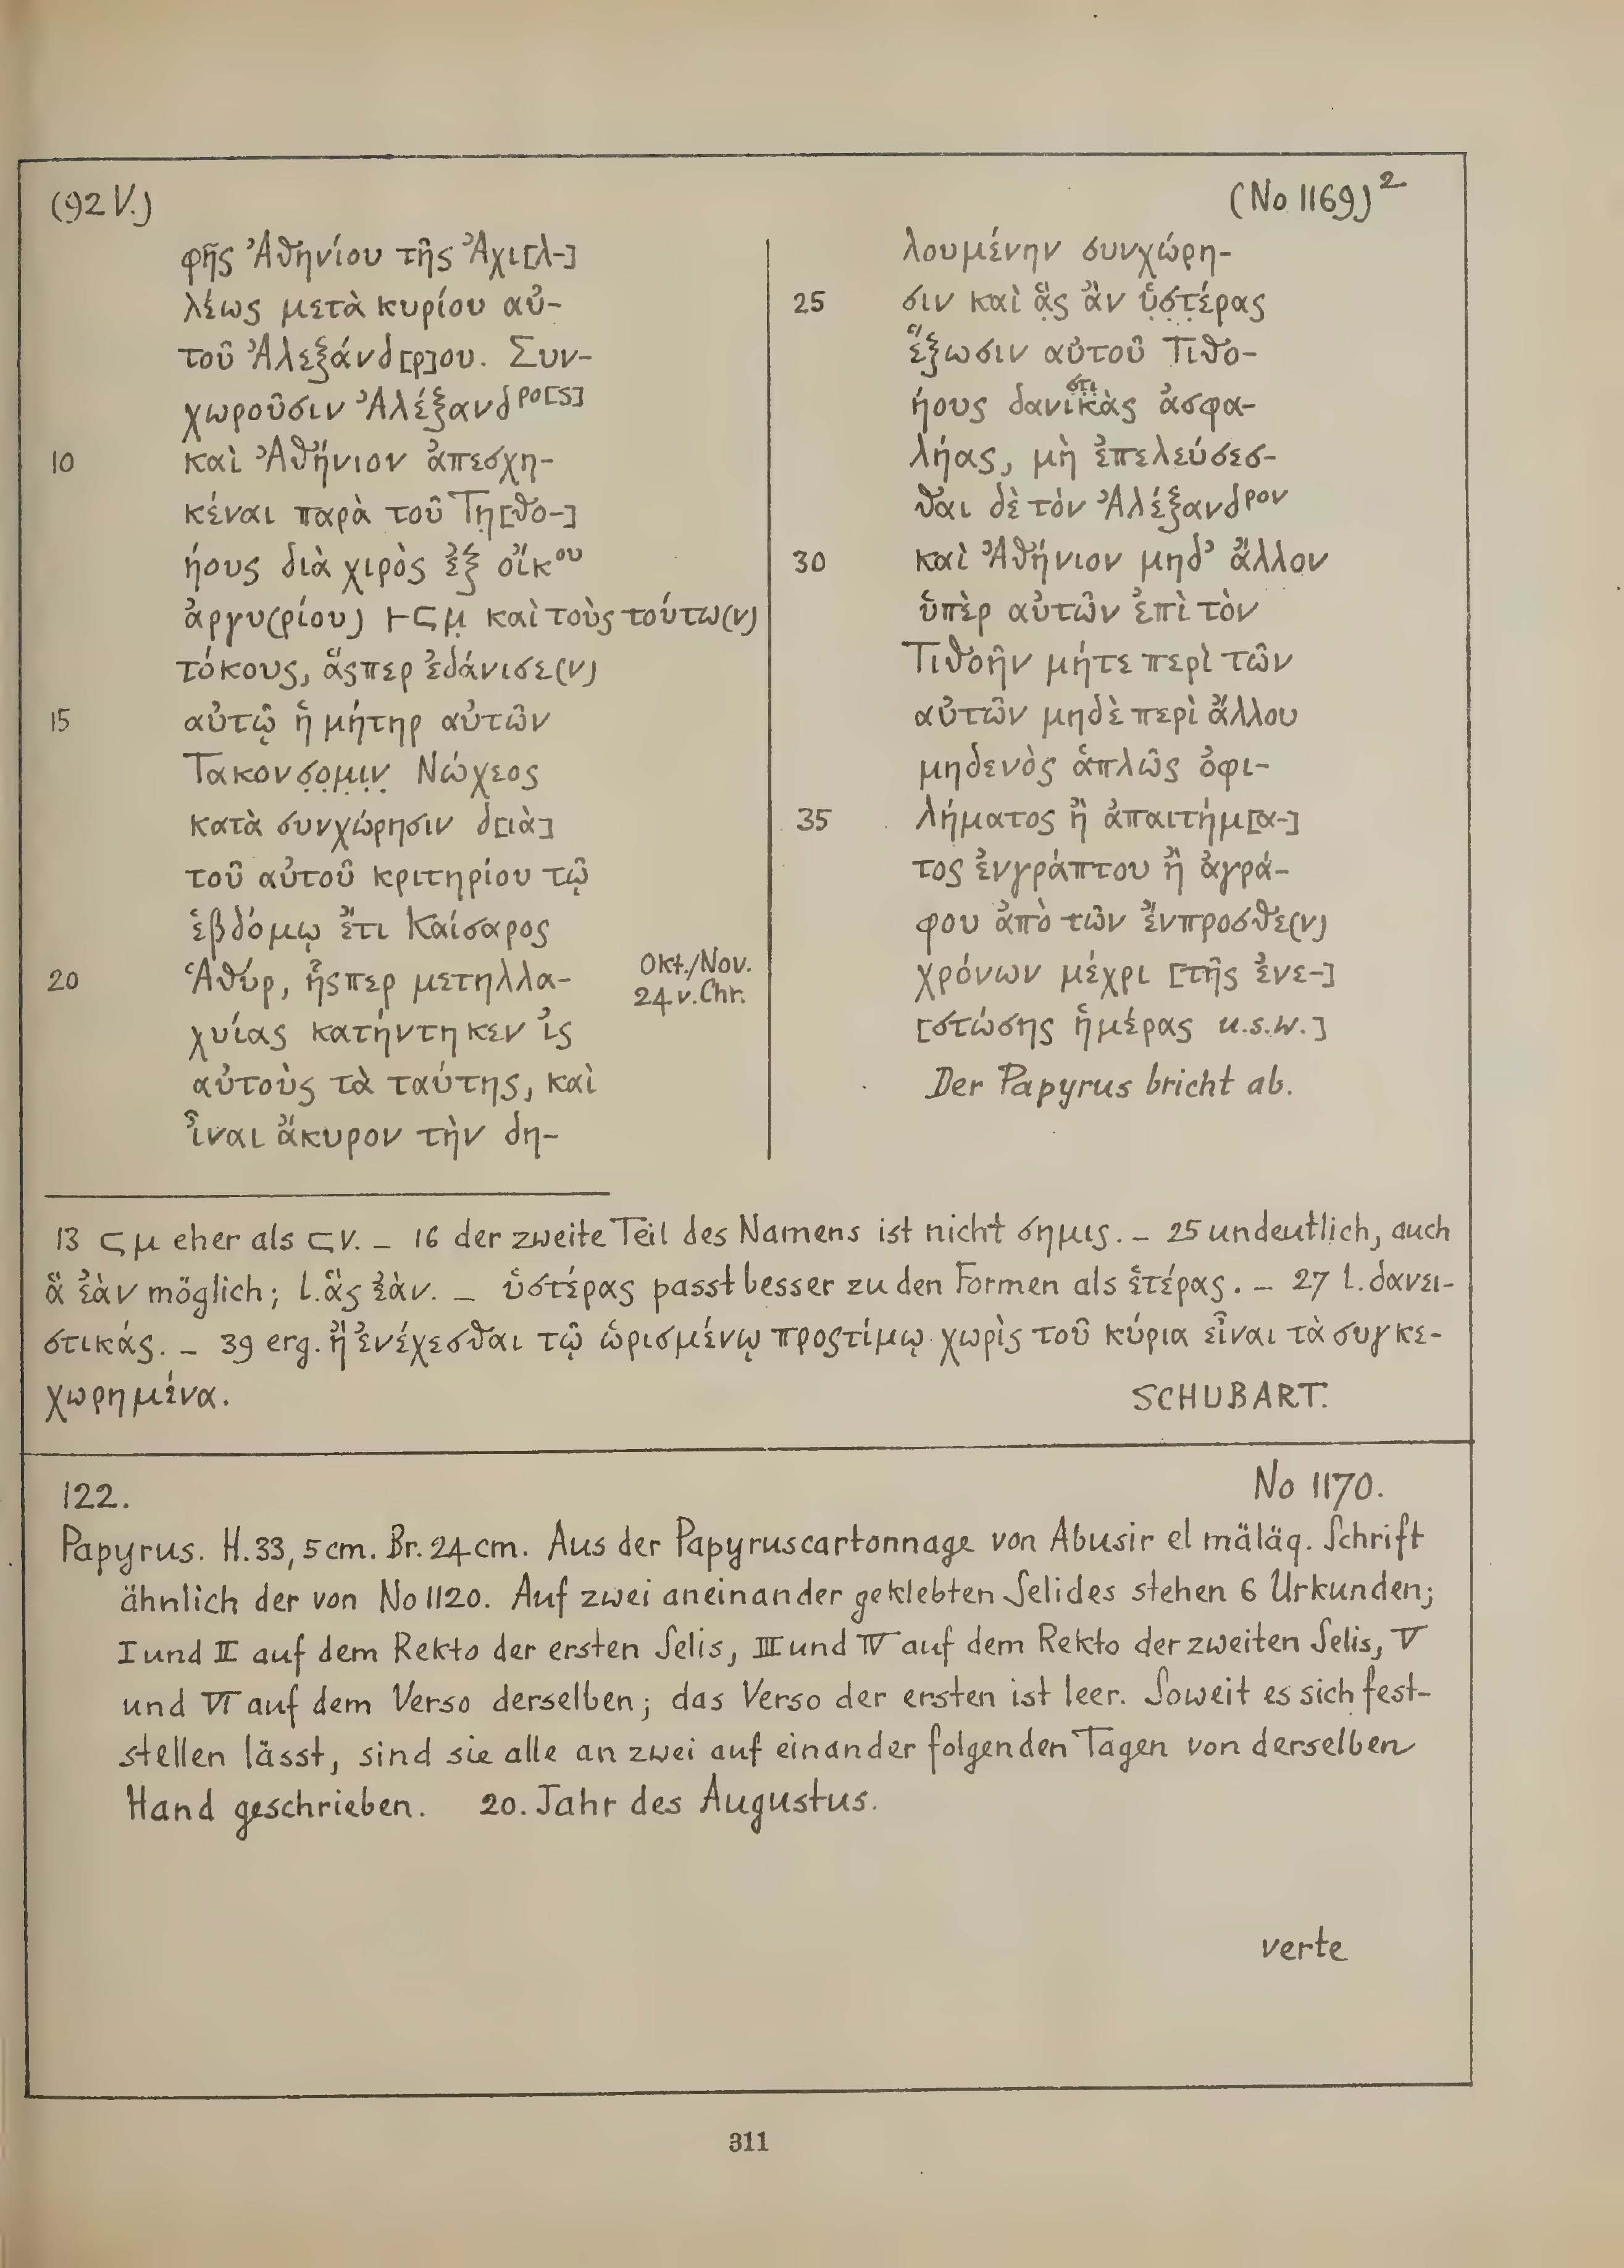 (92 V.)
(No 1169)²
φῆς Ἀθηνίου τῆς Ἀχι[λ-]
λέως μετὰ κυρίου αὐ-
τοῦ Ἀλεξάνδ[ρ]ου. Συν-
χωροῦσιν Ἀλέξανδρο[ς]
10 καὶ Ἀθήνιον ἀπεσχη-
κέναι παρὰ τοῦ Τη̣[θο-]
ήους διὰ χιρὸς ἐξ οἴκου
ἀργυ(ρίου) ⊢⊏μ̣ καὶ τοὺς τούτω(ν)
τόκους, ἅςπερ ἐδάνισε(ν)
15 αὐτῷ ἡ μήτηρ αὐτῶν
Τακονσ̣ο̣μ̣ι̣ν̣ Νώχεος
κατὰ συνχώρησιν δ[ιὰ]
τοῦ αὐτοῦ κριτηρίου τῷ
ἑβδόμῳ ἔτι Καίσαρος
20 Ἁθύρ, ἧςπερ μετηλλα-
Okt./Nov.
24 v. Chr.
χυίας κατήντηκεν ἰς
αὐτοὺς τὰ ταύτης, καὶ
ἶναι ἄκυρον τὴν δη-
λουμένην συνχώρη-
25 σιν καὶ ἅ̣ς ἂν ὑ̣σ̣τ̣έρας
ἔξωσιν αὐτοῦ Τιθο-
ήους δανιστικὰς ἀσφα-
λήας, μὴ ἐπελεύσεσ-
θαι δὲ τόν Ἀλέξανδρον
30 καὶ Ἀθήνιον μηδ’ ἄλλον
ὑπὲρ αὐτῶν ἐπὶ τὸν
Τιθοῆν μήτε περὶ τῶν
αὐτῶν μηδὲ περὶ ἄλλου
μηδενὸς ἁπλῶς ὀφι-
35 λήματος ἢ ἀπαιτήμ[α-]
τος ἐνγράπτου ἢ ἀγρά-
φου ἀπὸ τῶν ἔνπροσθε(ν)
χρόνων μέχρι [τῆς ἐνε-]
[στώσης ἡμέρας u.s.w.]
Der Papyrus bricht ab.
13 ⊏μ eher als ⊏ν. – 16 der zweite Teil des Namens ist nicht σημις. – 25 undeutlich, auch
ἃ ἐὰν möglich; l. ἃς ἐὰν. – ὑστέρας passt besser zu den Formen als ἑτέρας. – 27 l. δανει-
στικάς. – 39 erg. ἢ ἐνέχεσθαι τῷ ὡρισμένῳ προςτίμῳ χωρὶς τοῦ κύρια εἶναι τὰ συγκε-
χωρημένα.
SCHUBART.
122.
No 1170.
Papyrus. H. 33,5 cm. Br. 24 cm. Aus der Papyruscartonnage von Abusir el mäläq. Schrift
ähnlich der von No 1120. Auf zwei aneinander geklebten Selides stehen 6 Urkunden;
I und II auf dem Rekto der ersten Selis, III und IV auf dem Rekto der zweiten Selis, V
und VI auf dem Verso derselben; das Verso der ersten ist leer. Soweit es sich fest-
stellen lässt, sind sie alle an zwei auf einander folgenden Tagen von derselben
Hand geschrieben. 20. Jahr des Augustus.
verte
311